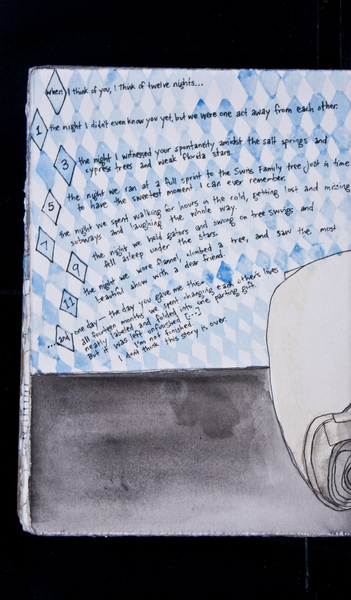 when I think of you, I think of twelve nights...
1 the night I didn't even know you yet, but we were one act away from each other.
3 the night I witnessed your spontaneity amidst the salt springs and
cypress trees and weak Florida stars.
the night we ran at a full sprint to the Swiss Family tree just 4 time
5 to have the sweetest moment I can ever remember.
the night we spent walking for hours in the cold, getting lost and missing
7 subways and laughing the whole way.
9 the night we held gators and swung on tree swings and
fell asleep under the stars.
11 the night we wore flannel, climbed a tree, and saw the most
beautiful show with a dear friend.
...and one day - the day you gave me this.
all fourteen months we spent changing each other's lives
neatly labeled and folded into one parting gift.
But it was left unfinished [...]
I'm not finished.
I don't think this story is over.